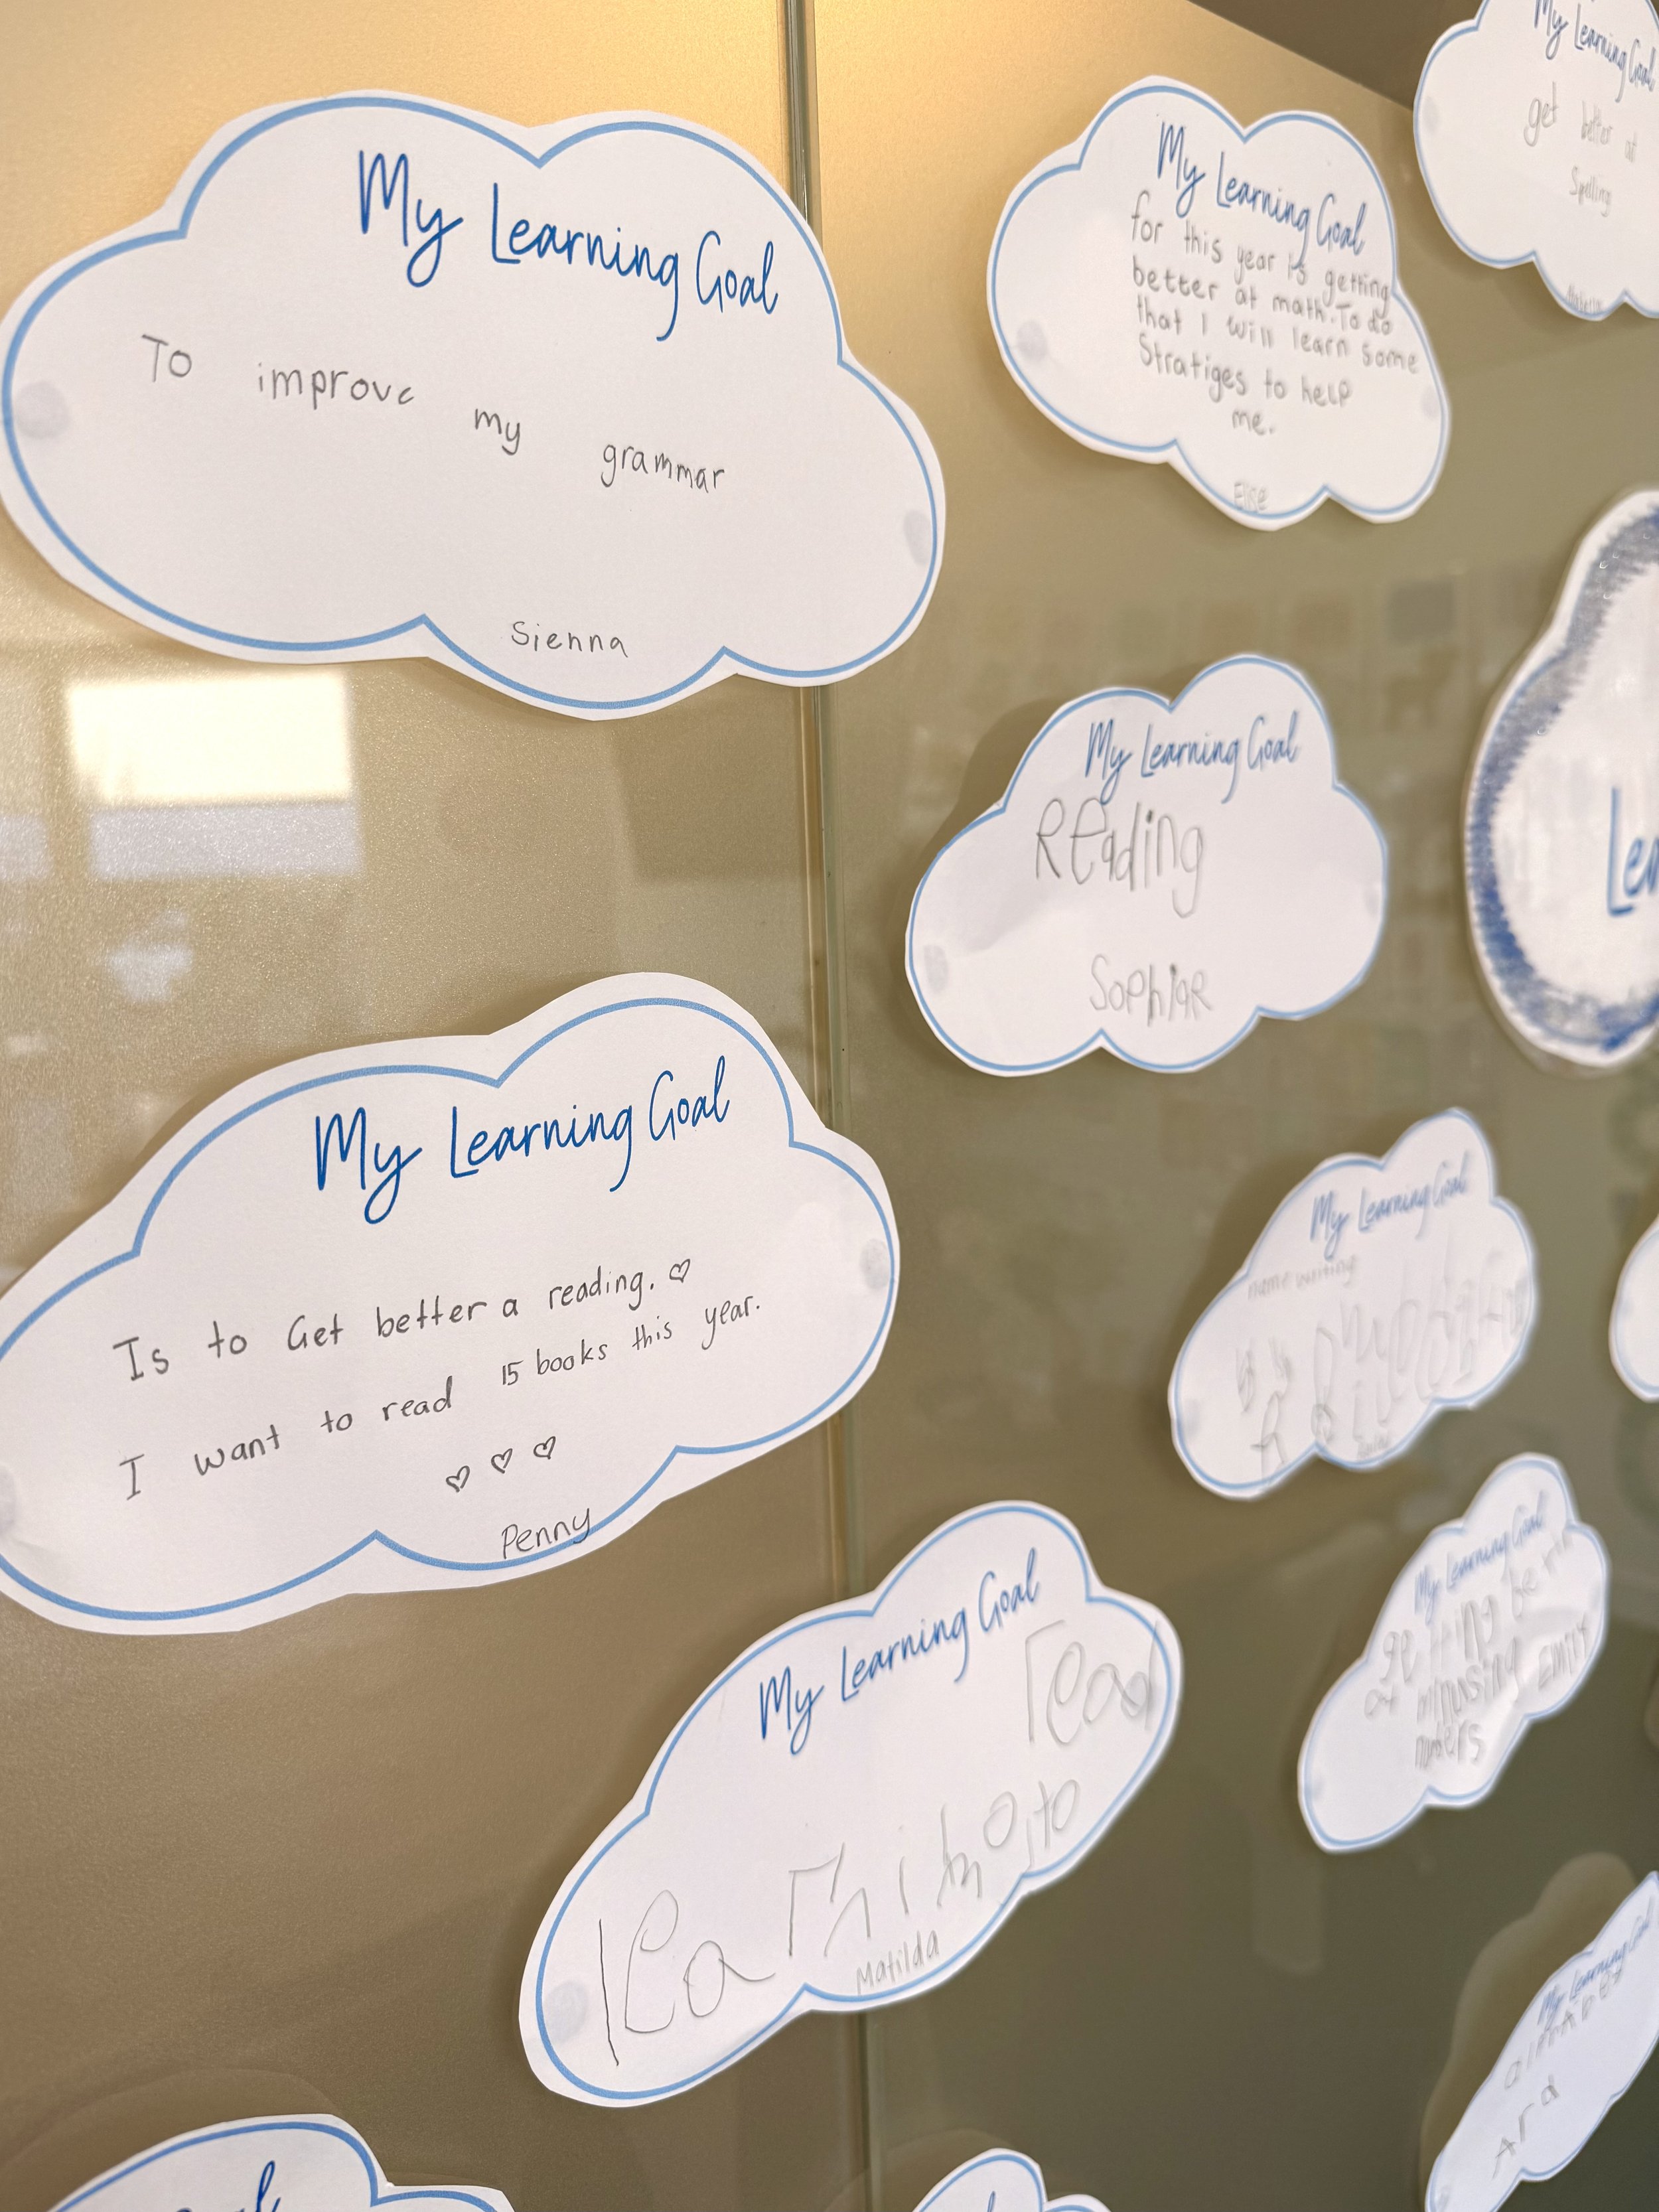 My Learning Goal
To improve my grammar
Sienna
My Learning Goal
for this year is getting
better at math. To do
that I will learn some
Stratiges to help
me.
Elise
My Learning Goal
get better at
Spelling
My Learning Goal
Reading
Sophiar
Lea
My Learning Goal
Is to Get better a reading. ♡
I want to read 15 books this year.
♡ ♡ ♡
Penny
My Learning Goal
name writing
My Learning Goal
read
learning to
Matilda
My Learning Goal
getting
at minusing
numbers
My Learning Goal